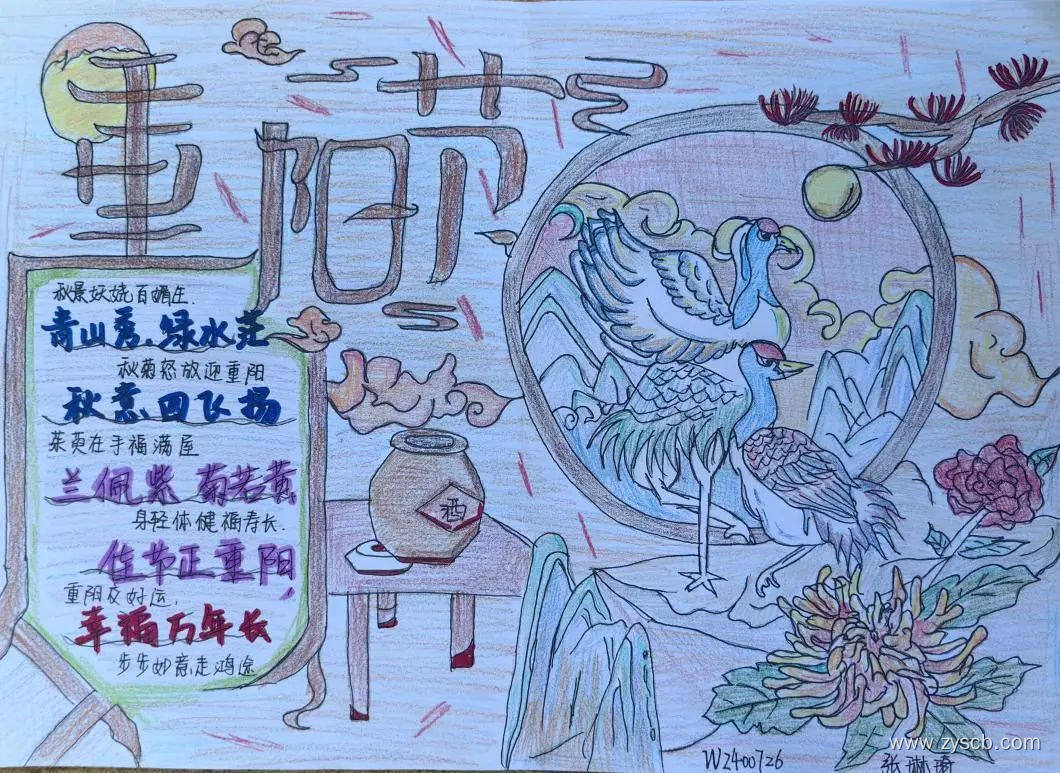 重阳节
秋景妖娆百媚生.
青山秀.绿水茫
秋菊怒放迎重阳
秋意四飞扬
茱萸在手福满屋
兰佩紫 菊若黄,
身轻体健福寿长.
佳节正重阳,
重阳交好运,
幸福万年长
步步如意走鸿途
酒
W2400726
张琳
www.zyscb.com